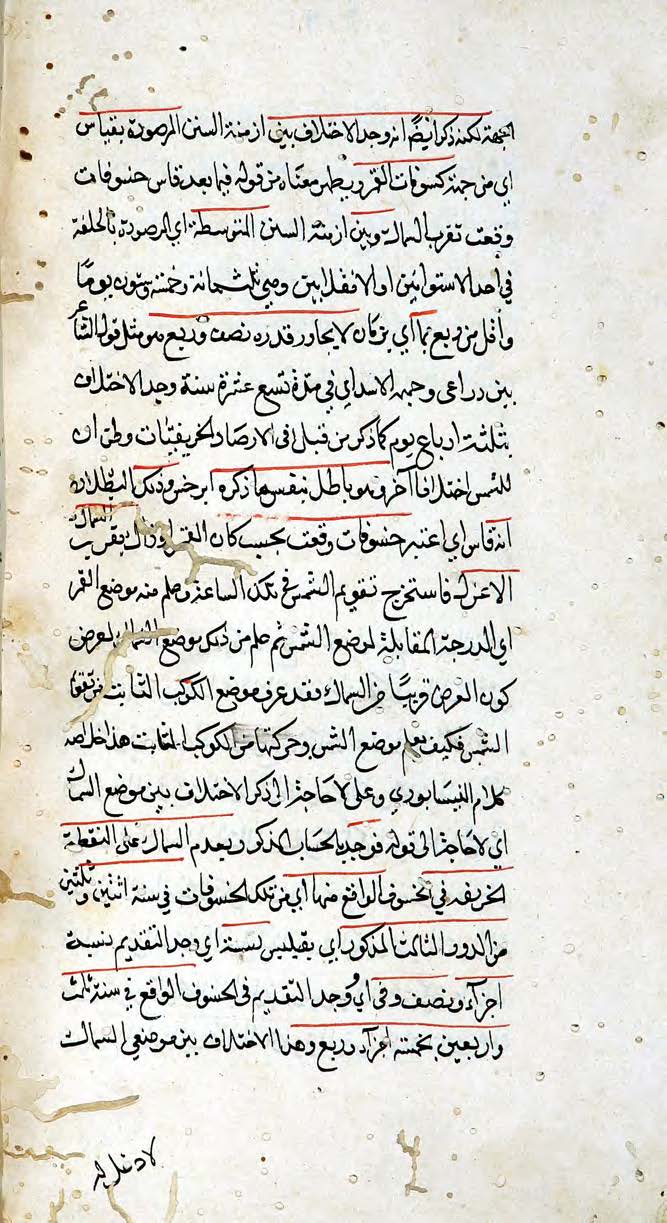 الجهة لكنه ذكر ايضًا انه وجد الاختلاف بين ازمنة السنين المرصودة بقياس
اي من جهة كسوفات القمر ويظهر معناه من قوله فيما بعد قاس خسوفات
وقعت بقرب السماك وبين ازمنة السنين المتوسطة اي المرصودة بالحلقة
في احد الاستوائين او الانقلابين وهي ثلثمائة وخمسة وستون يومًا
وأقل من ربع بما اي بزمان لا يجاوز قدره نصف وربع هو مثل قوله الشاعر
بين ذراعي وجبهة الاسد اي في مدة تسع عشرة سنة وجد الاختلاف
بثلثة ارباع يوم كما ذكر من قبل في الارصاد الخريفيات وظن ان
للشمس اختلافا آخر وهو باطل بنفس ما ذكره ابرخس وذلك البطلان
انه قاس اي اعتبر خسوفات وقعت بحسب كان القمر اذ ذاك بقرب السماك
الاعزل فاستخرج تقويم الشمس في تلك الساعة وعلم منه موضع القمر
اي الدرجة المقابلة لموضع الشمس ثم علم من ذلك موضع السماك لغرض
كون القمر قريبًا من السماك فقد عرف موضع الكوكب الثابت من تقويم
الشمس فكيف يعلم موضع الشمس وحركتها من الكوكب الثابت هذا خلاصة
كلام النيسابوري وعلى لا حاجة الى ذكر الاختلاف بين موضع السماك
اي لا حاجة الى قوله فوجد بالحساب المذكور يعدم السماك على النقطة
الخريفية في الخسوف الواقع منها اي من تلك الخسوفات في سنة اثنين وثلثين
من الدور الثالث المذكور اي بقيلبس بستة اي وجد التقديم بستة
اجزآء ونصف وفي اي وجد التقديم في الخسوف الواقع في سنة ثلث
واربعين بخمسة اجزآء وربع وهذا الاختلاف بين موضعي السماك